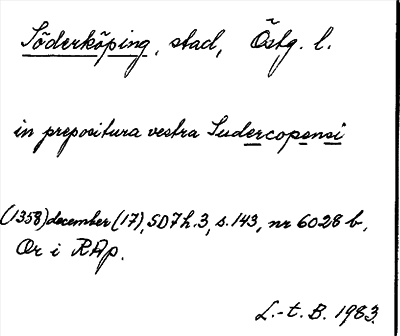 Söderköping, stad, Östg. l.
in prepositura vestra Sudercopensi
(1358) december (17), SD7h.3, s.143, nr 6028 b,
Or i RAp.
L.-t. B. 1983.